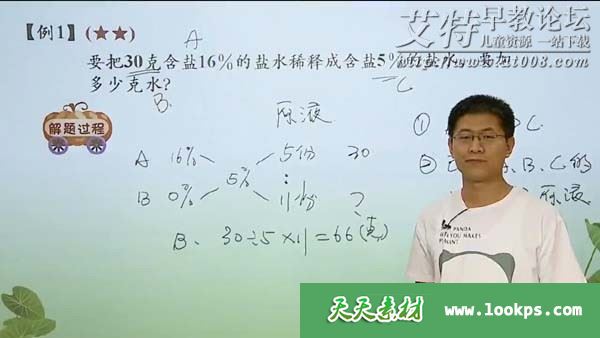 艾特早教论坛
儿童资源 一站下载
【例1】(★★)
A
要把30克含盐16%的盐水稀释成含盐5%的盐水，要加
多少克水？
B.
C
解题过程
原液
① C
A 16% 5份 30
5% :
② B、C的
B 0% 11份 ?
原液
B. 30÷5×11=66(克)
PANDA
天天素材 www.lookps.com